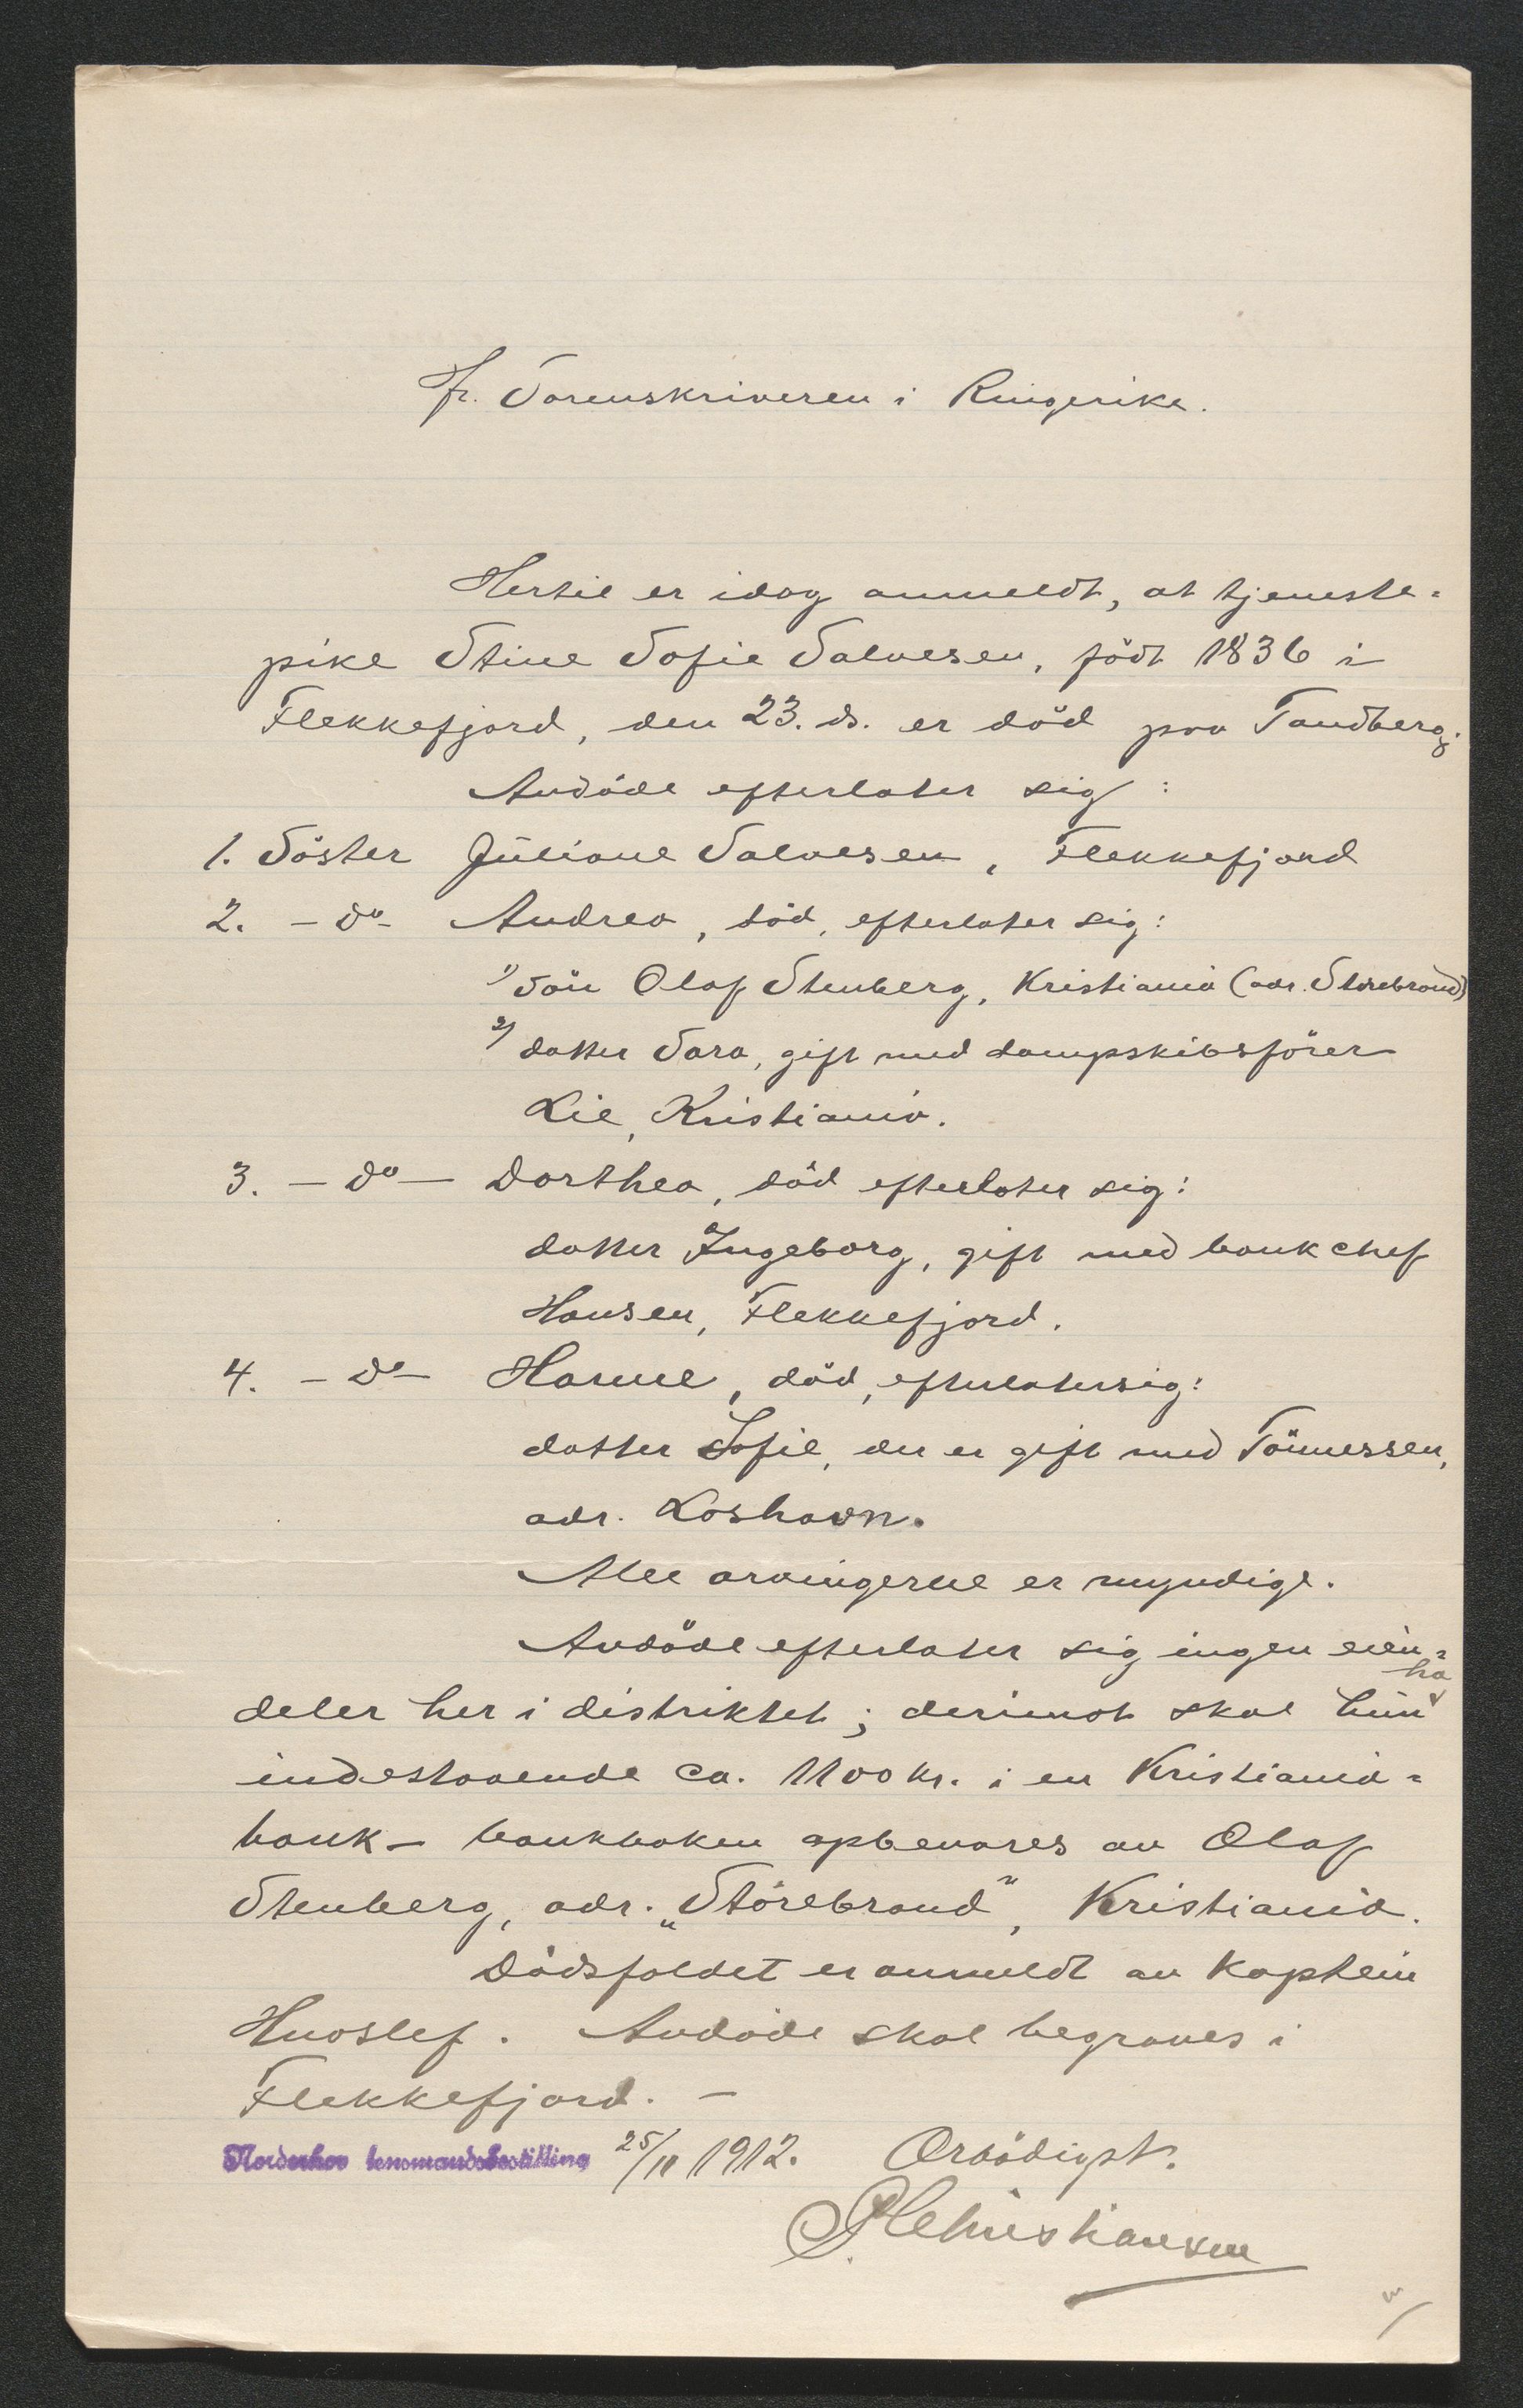 Hr. Sorenskriveren i Ringerike.
Hertil er idag anmeldt, at tjeneste-
pike Stine Sofie Salvesen, födt 1836 i
Flekkefjord, den 23. ds. er död paa Tandberg.
Avdöde efterlater sig:
1. Söster Juliane Salvesen, Flekkefjord
2. - do - Andrea, död, efterlater sig:
1) Sön Olaf Stenberg, Kristiania (adr. Storebrand)
2) datter Sara, gift med dampskibsförer
Lie, Kristiania.
3. - do - Dorthea, död efterlater sig:
datter Ingeborg, gift med bankchef
Hansen, Flekkefjord.
4. - do - Hanne, död, efterlater sig:
datter Sofie, der er gift med Tönnessen,
adr. Loshavn.
Alle arvingerne er myndige.
Avdöde efterlater sig ingen eien-
deler her i distriktet; derimot skal hun ha
indestaaende ca. 1100 kr. i en Kristiania-
bank - bankboken opbevares av Olaf
Stenberg, adr. „Störebrand", Kristiania.
Dödsfaldet er anmeldt av Kaptein
Huoslef. Avdöde skal begraves i
Flekkefjord. -
Norderhov lensmandsbestilling 25/11 1912. Ærbödigst.
P. Christiansen